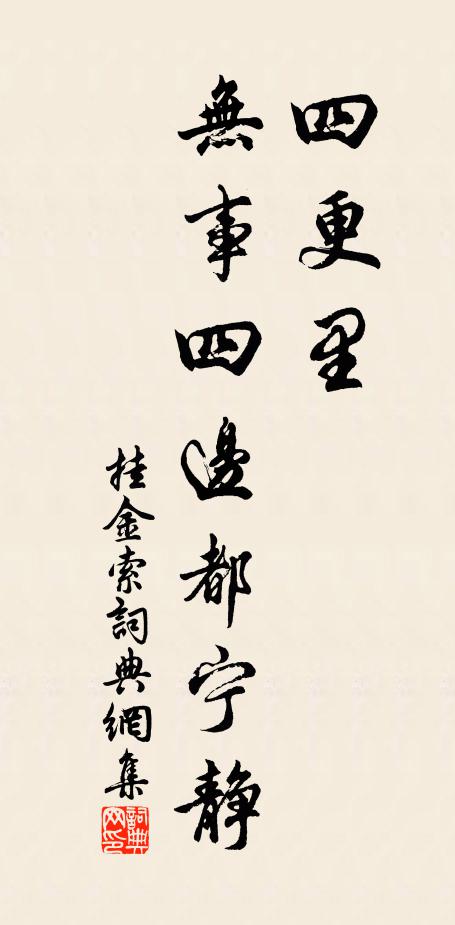 四更里
無事四邊都宁靜
挂金索詞典網集
詞典网印